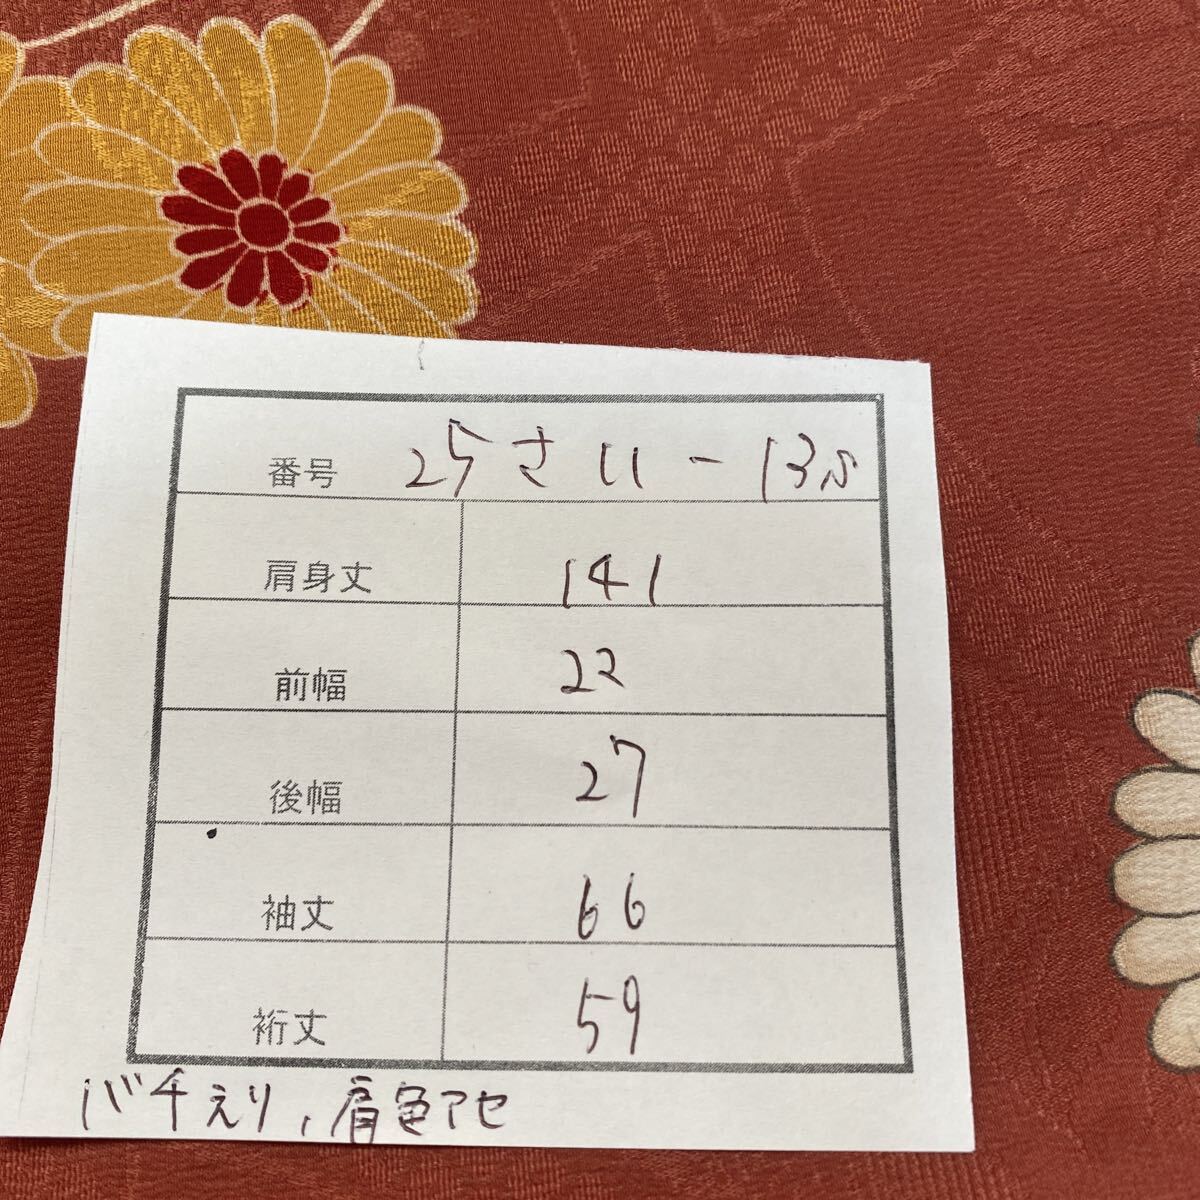 番号 25さい-13s
肩身丈 141
前幅 22
後幅 27
袖丈 66
裄丈 59
バチえり,肩色アセ